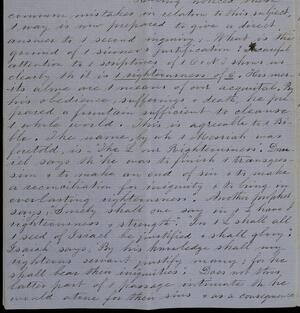 common mistakes, in relation to this subject,
I may is now prepared to give a direct
answer to 1 second inquiry. What is the
ground of 1 sinner's justification? A careful
attention to 1 scriptures of O & N shows us
clearly th it is 1 righteousness of C. His mer-
its alone are 1 means of our acquittal. By
his obedience, sufferings & death, he pre-
pared a fountain sufficient to cleanse
1 whole world. This is agreeable to Bi-
ble. The name, by wh 1 Messiah was
foretold, is - The L our Righteousness. Dan-
iel says, th he was to finish 1 transgres-
sion & to make an end of sin & to make
a reconciliation for iniquity & to bring in
everlasting righteousness. Another prophet
says, Surely shall one say, in 1 L have I
righteousness & strength. In 1 L shall all
1 seed of Israel be justified & shall glory.
Isaiah says, By his knowledge shall my
righteous servant justify many; for he
shall bear their iniquities. Does not this
latter part of 1 passage intimate th he
would atone for their sins & as a consequence